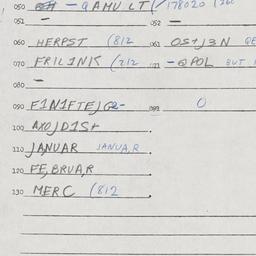 050 - QAMULT (178020
051 - 052 -
060 HERPST (812 061 OS+J3N
070 FRIL1NK (212 - QPOL BUT
080 -
090 F1N1FTEJG2- 099 O
100 AXOJD1S+
110 JANUAR JANUA,R
120 FE,BRUAR
130 MERC (812